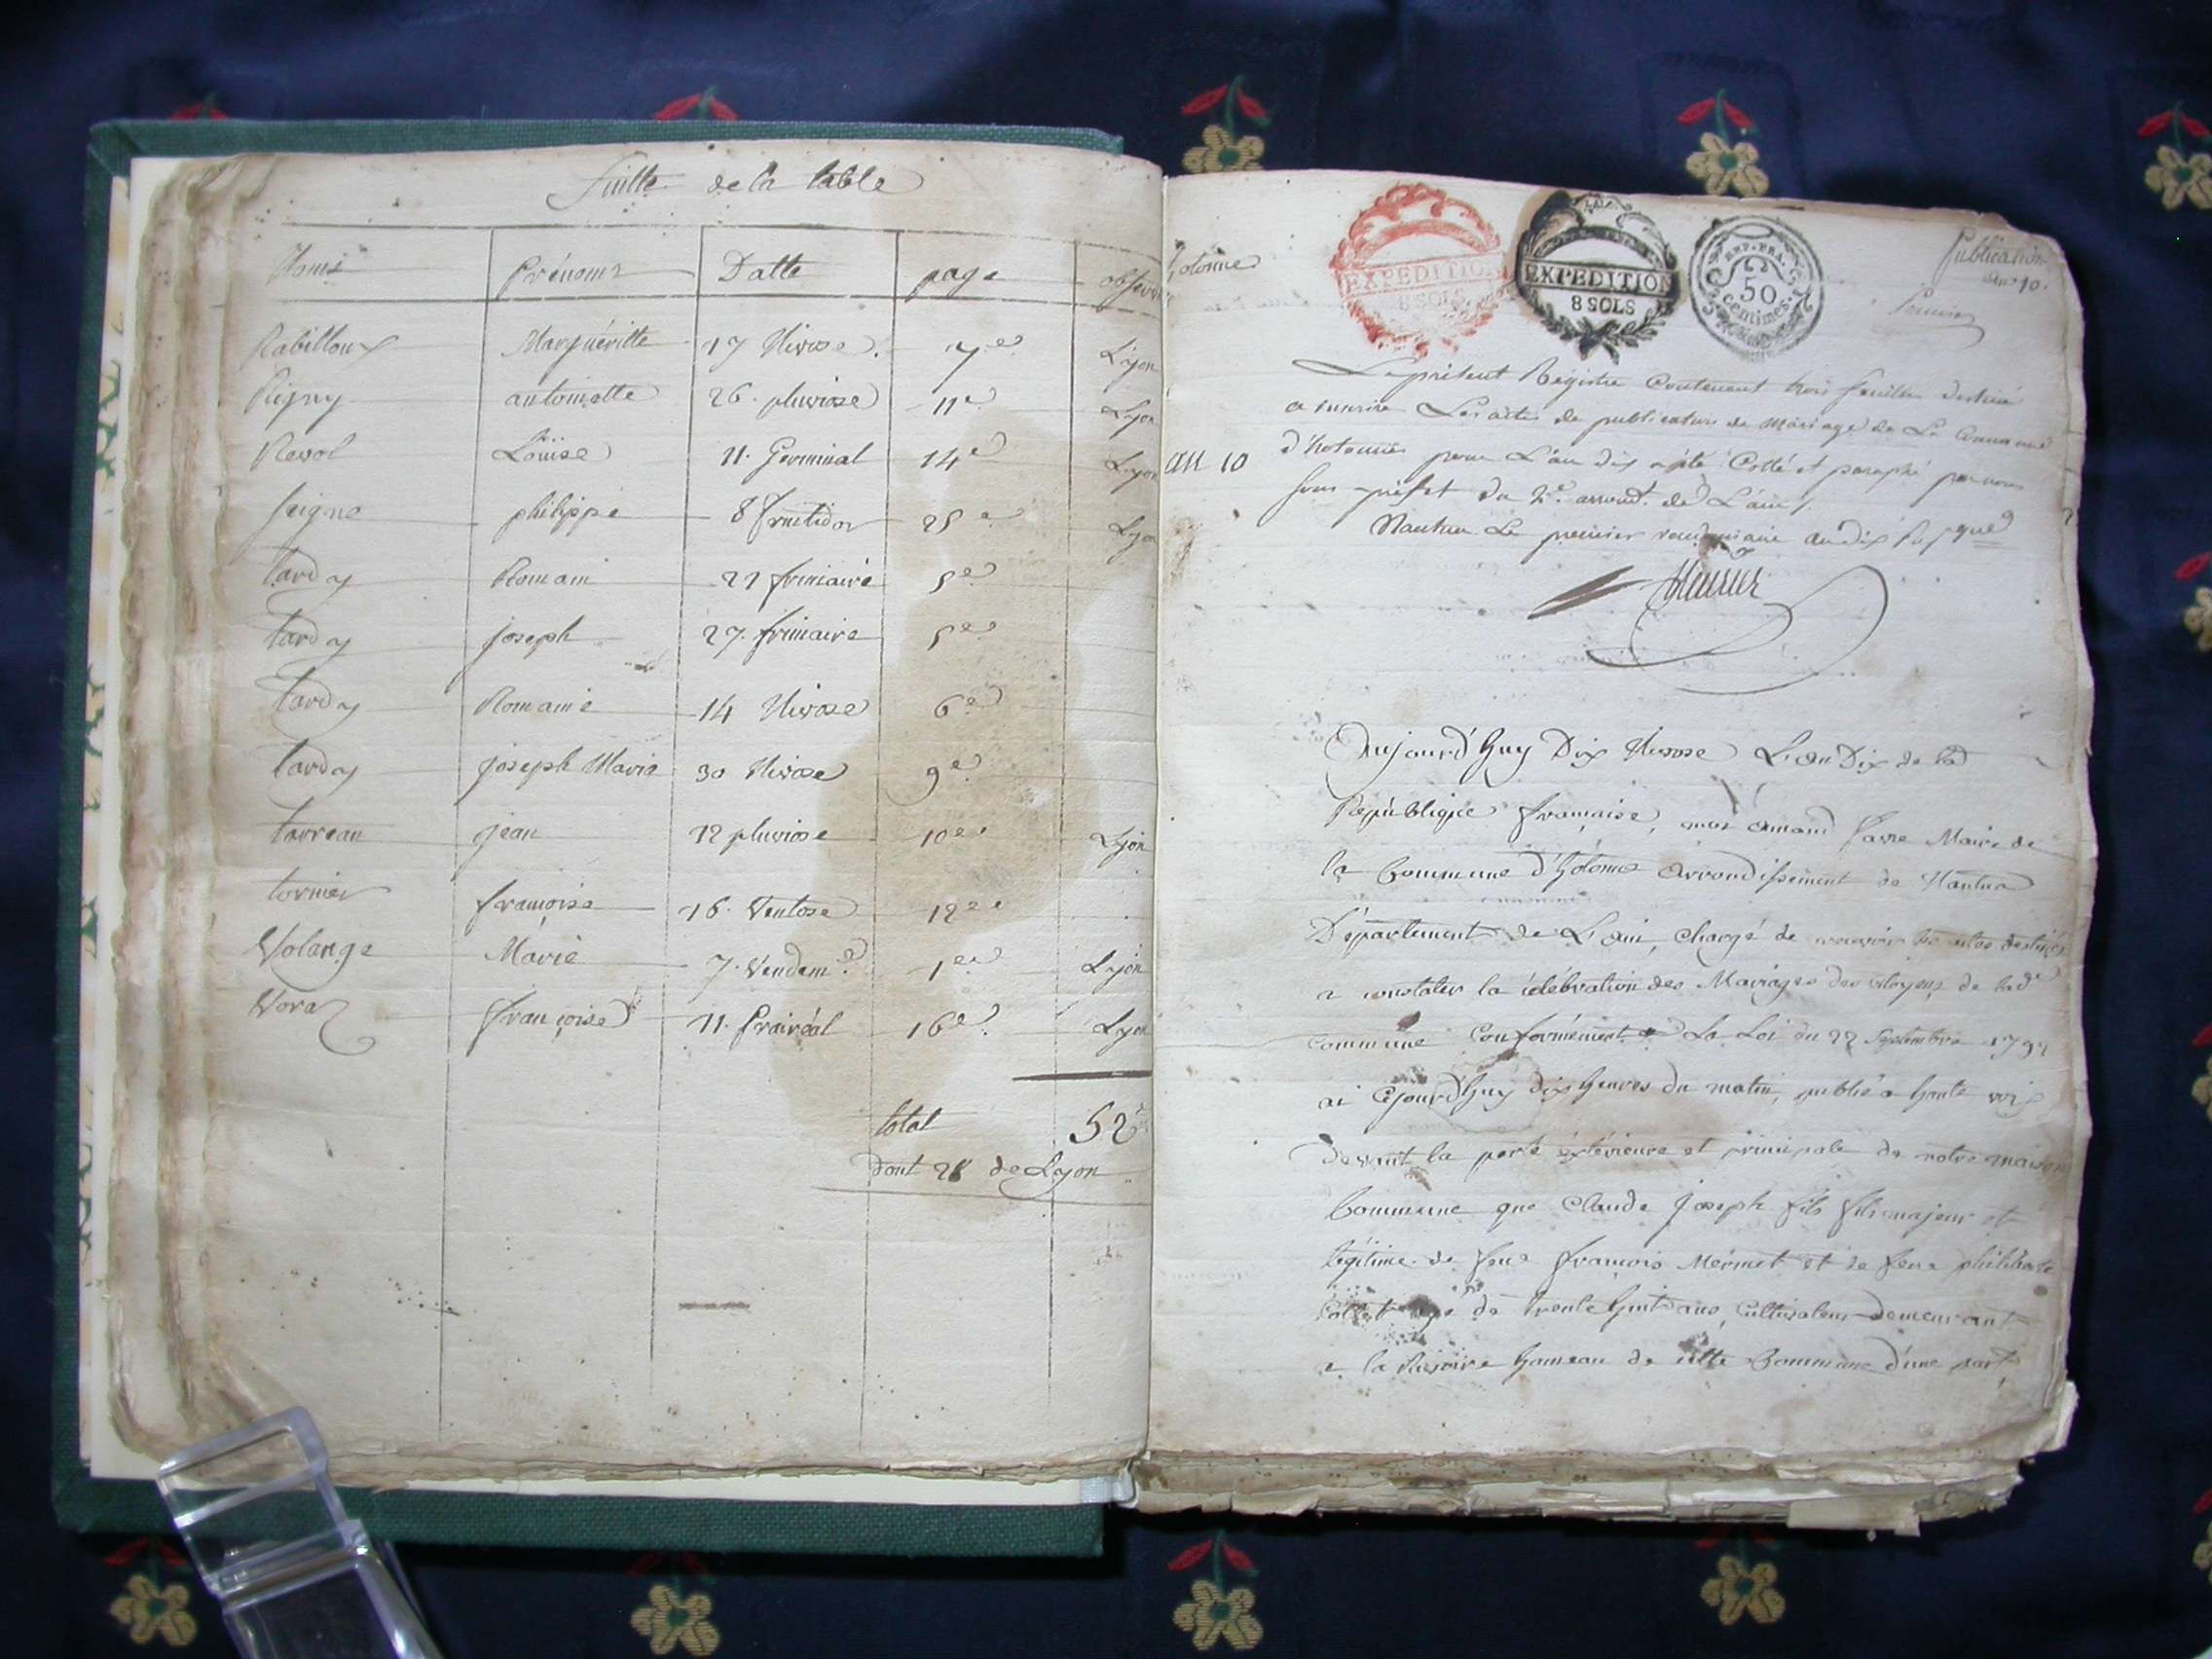 Suitte de la table
Noms Prénoms Datte page observ
Rabilloux Marguéritte 17 Nivose. 7e Lyon
Rigny antoinette 26. pluviose 11e Lyon
Revol Loüise 11. Germinal 14e Lyon
Seigne philippe 8 fructidor 25e Lyon
tardy Romain 21 frimaire 5e
tardy joseph 27. frimaire 5e
tardy Romaine 14 Nivose 6e
tardy joseph Marie 30 Nivose 9e
tarreau jean 12 pluviose 10e Lyon
tornier francoise 16. Ventose 12e
Volange Marie 7. Vendem.re 1er Lyon
Vora françoise 11. prairéal 16e. Lyon
total 52
dont 28 de Lyon
hotonne
EXPEDITION
8 SOLS
EXPEDITION
8 SOLS
REP. FRA.
50
centimes.
Publication
an 10.
Premier
Le présent Régistre Contenant trois feuilles destiné
a inscrire Les actes de publication de Mariage de La Commune
an 10
d'hotonne pour L'an dix a été Cotté et paraphé par nous
sous-préfet du 2e. arrond.t de L'ain
Nantua Le premier vendemiaire an dix
Aujourd'huy Dix Nivose L'an Dix de la
Republique française, moi amand favre Maire de
la Commune d'hotonne arrondissement de Nantua
Département de L'ain, chargé de recevoir les actes destinés
a constater la célébration des Mariages des citoyens de lad.e
commune Conformément a La Loi du 22 Septembre 1792
ai Cejourd'huy dix heures du matin, publié a haute voix
devant la porte éxtérieure et principale de notre maison
Commune que Claude joseph fils majeur et
légitime de feu françois Mermet et de feue philiberte
Collet agé de trente huit ans, Cultivateur demeurant
a la hameau de cette Commune d'une part,